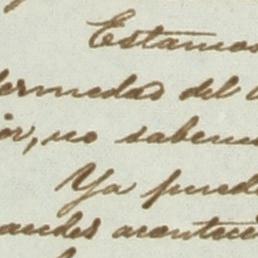 Estamos
ermedad del
or, no sabem
Ya pued
andes aconteci